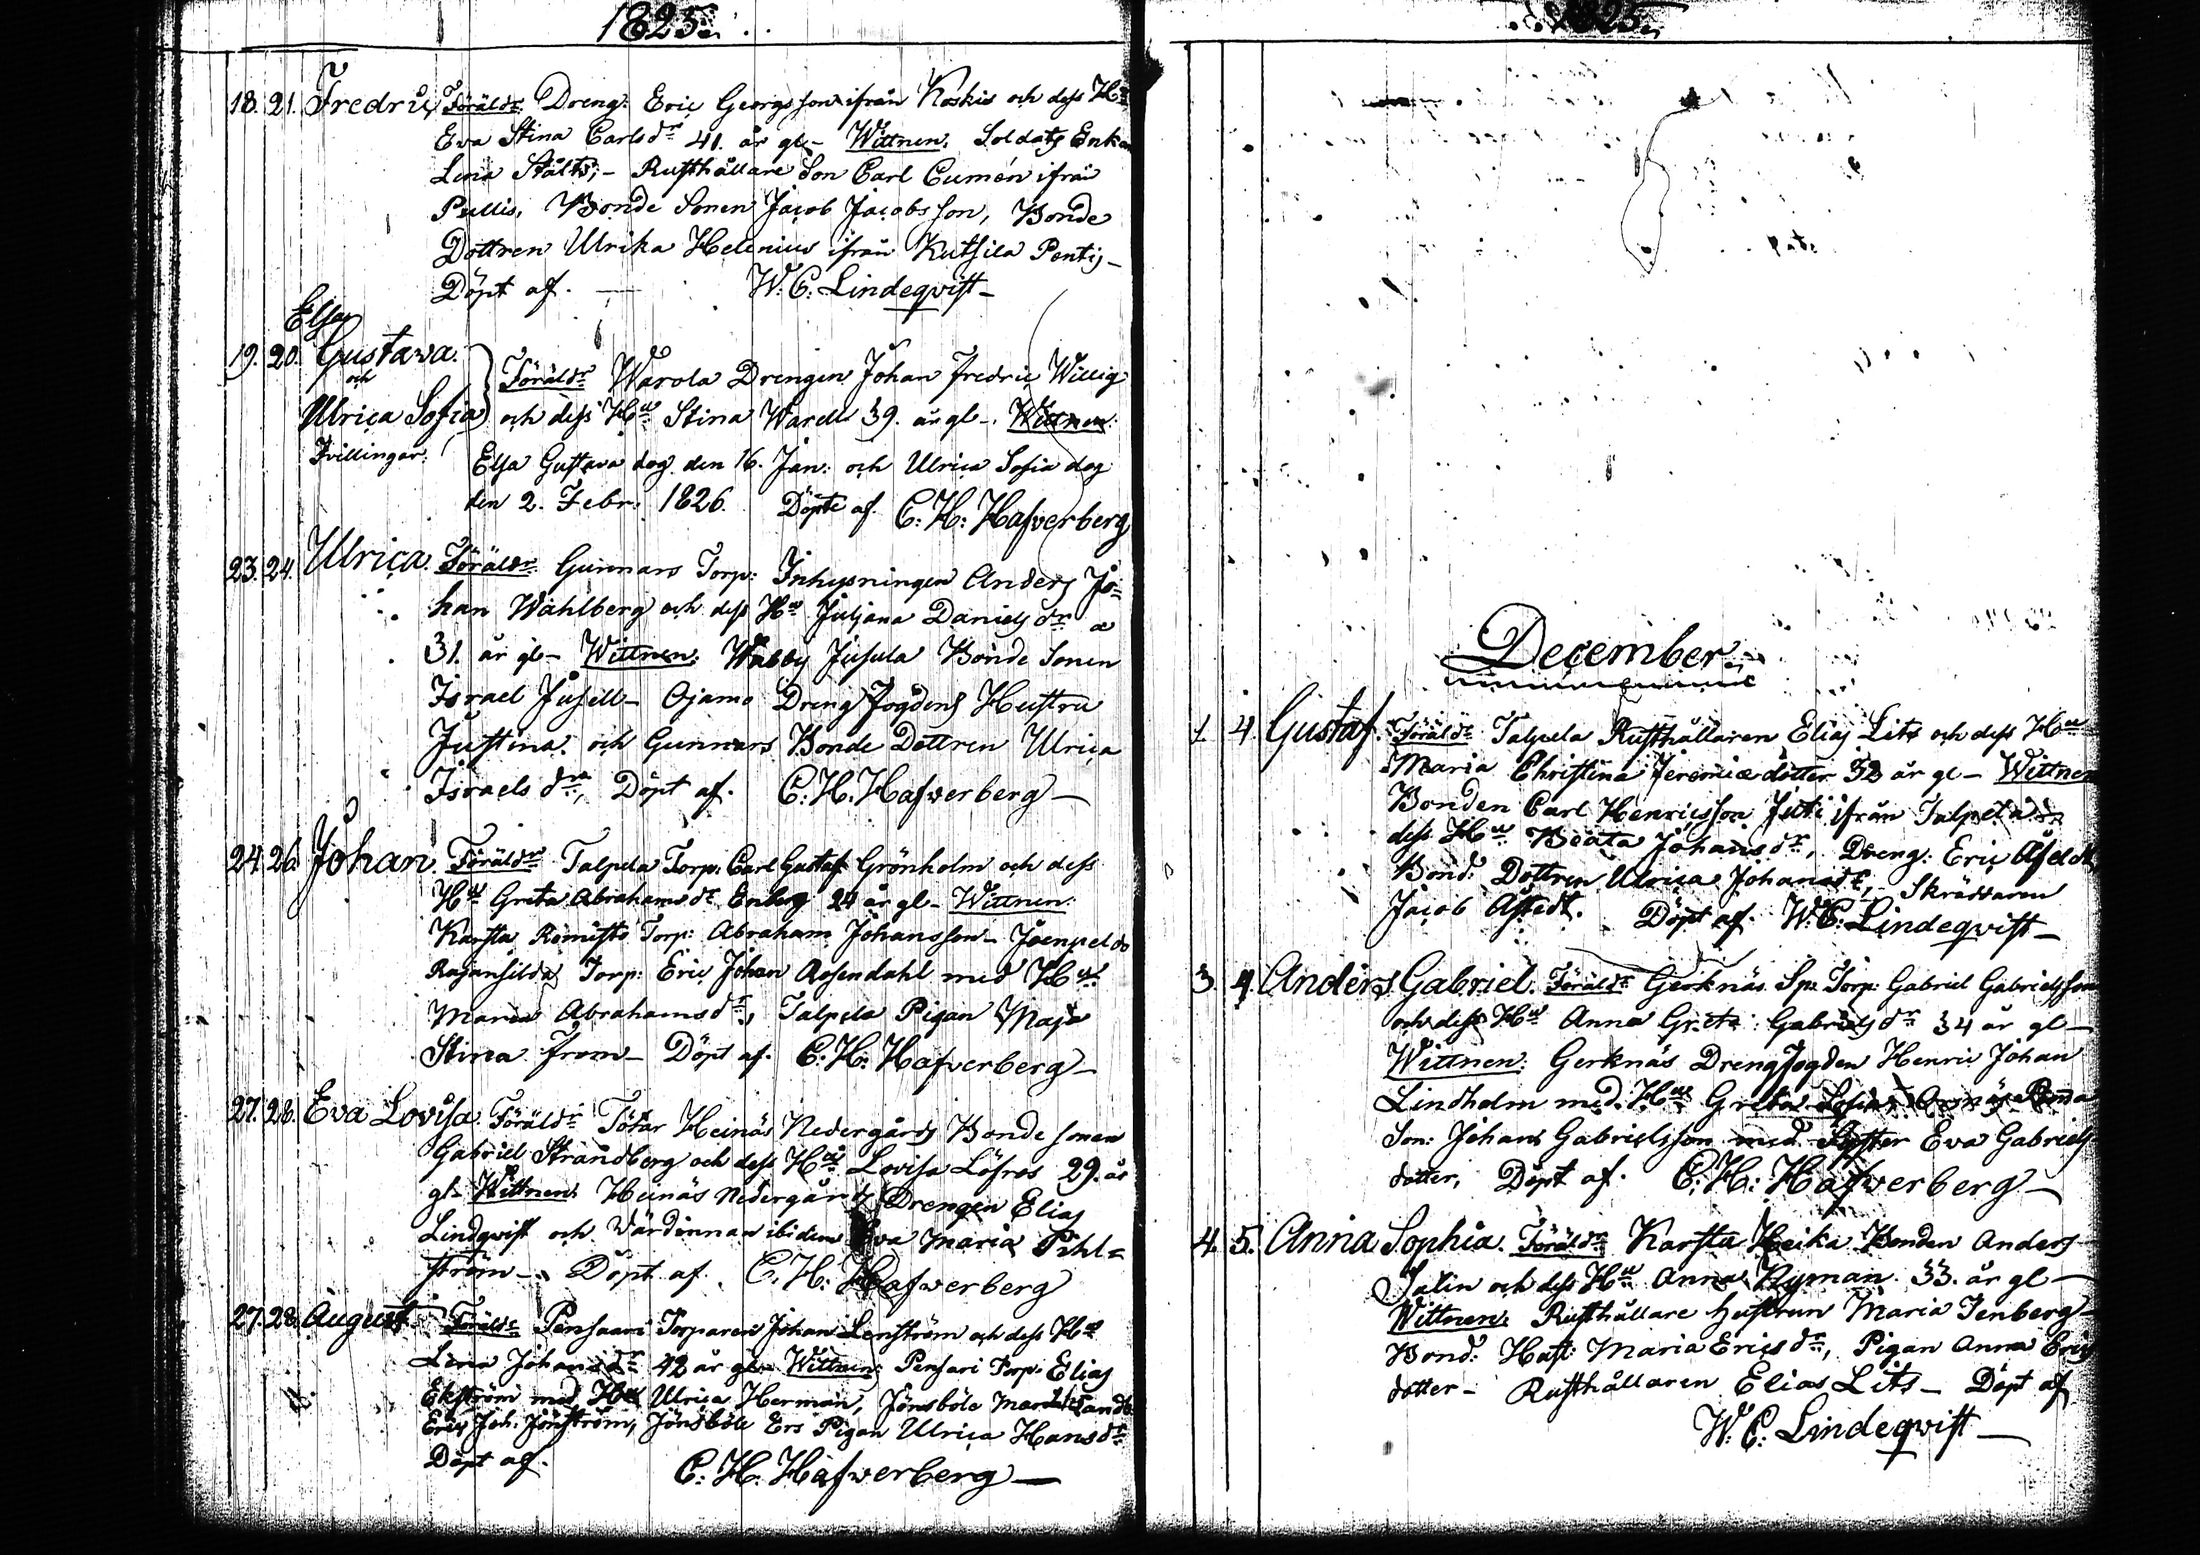 1825.
18. 21. Fredric, Föräldr: Dreng: Eric Georgsson ifrån Koskis och dess Hu
Eva Stina Carlsdr 41. år gl- Wittnen: Soldats Enkan
Lena Stålts;- Rusthållare Son Carl Cumén ifrån
Pullis, Bonde Sonen Jacob Jacobsson, Bonde
Dottren Ulrika Helenius ifrån Kutsila Pentis-
Döpt af. — W. C. Lindeqvist-
Elsa
19. 20. Gustava.
och
Föräldr Warola Drengen Johan Fredric Willig
Ulrica Sofia och dess Hu Stina Warell 39. år gl-. Wittnen:
Tvillingar. Elsa Gustava dog den 16. Jan: och Ulrica Sofia dog
den 2. Febr: 1826. Döpte af C: H: Hafverberg
23. 24. Ulrica. Föräldr: Gunnars Torp: Inhysningen Anders Jo=
han Wahlberg och dess Hu Juljana Danielsdr
31. år gl- Wittnen: Jusula Bonde Sonen
Israel Jusell- Ojamo Drengfogdens Hustru
Justina. och Gunnars Bonde Dottren Ulrica
Israelsdr, Döpt af. C. H. Hafverberg—
24. 26. Johan. Föräldr Talpela Torp: Carl Gustaf Grönholm och dess
Hu Greta Abrahamsdr Enberg 24 år gl- Wittnen:
Karsta Torp: Abraham Johansson-
Torp: Eric Johan Rosendahl med Hu
Maria Abrahamsdr, Talpela Pigan Maja
Stina From- Döpt af. C. H: Hafverberg-
27. 28. Eva Lovisa. Föräldr Tötar Heinäs Nedergårds Bonde sonen
Gabriel Strandberg och dess Hu Lovisa Löfros 29. år
gl- Wittnen: Heinäs Nedergårds Drengen Elias
Lindqvist och Värdinnan ibidem Eva Maria Pihl=
ström-, Döpt af. C. H: Hafverberg
27. 28. August. Föräldr Pensaari Torparen Johan Lenström och dess Hu
Lena Johansdr 42 år gl- Wittnen: Pensari Torp: Elias
Ekström med Hu Ulrica Herman, Jönsböle
Eric Joh: Jönström, Jönsböle Ers Pigan Ulrica Hansdr
Döpt af. C. H. Hafverberg—
1825.
December.
1. 4. Gustaf. Föräldr Talpela Rusthållaren Elias Lits och dess Hu
Maria Christina Jeremiæ dotter 32 år gl- Wittnen
Bonden Carl Henricsson Juti ifrån Talpela
dess Hu Beata Johansdr, Dreng: Eric
Bond: Dottren Ulrica Johansdr, Skräddaren
Jacob Åstedt. Döpt af. W. C. Lindeqvist-
3. 4. Anders Gabriel. Föräldr Gerknäs Sp: Torp: Gabriel Gabrielsson
och dess Hu Anna Greta Gabrielsdr 34 år gl-
Wittnen: Gerknäs Drengfogden Henric Johan
Lindholm med Hu Greta
Son: Johan Gabrielsson med Syster Eva Gabriels
dotter, Döpt af. C. H: Hafverberg-
4. 5. Anna Sophia. Föräldr Karstu Heika Bonden Anders
Salin och dess Hu Anna Nyman. 33. år gl-
Wittnen: Rusthållare hustrun Maria Tenberg-
Bond: Hust: Maria Ericsdr, Pigan Anna Erics
dotter- Rusthållaren Elias Lits- Döpt af
W. C: Lindeqvist—